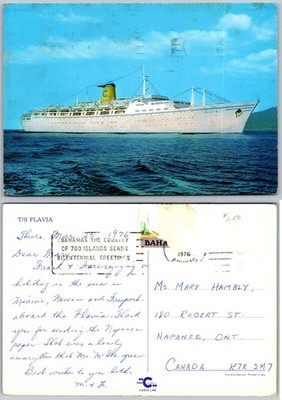 T/S FLAVIA
Thurs. Mar. 25 1976
Dear Mary
Frank & I are enjoying a
holiday in the sun in
Nassau and Freeport
aboard the Flavia. Thank
you for sending the Napanee
paper. That was a lovely
that Mr. Mc
Best wishes to you both.
M. & F.
BAHAMAS THE COUNTRY
OF 700 ISLANDS SENDS
BICENTENNIAL GREETINGS
BAHA
1976
MS. MARY HAMBLY,
180 ROBERT ST
NAPANEE, ONT.
CANADA K7R 2M7
C
COSTA LINE